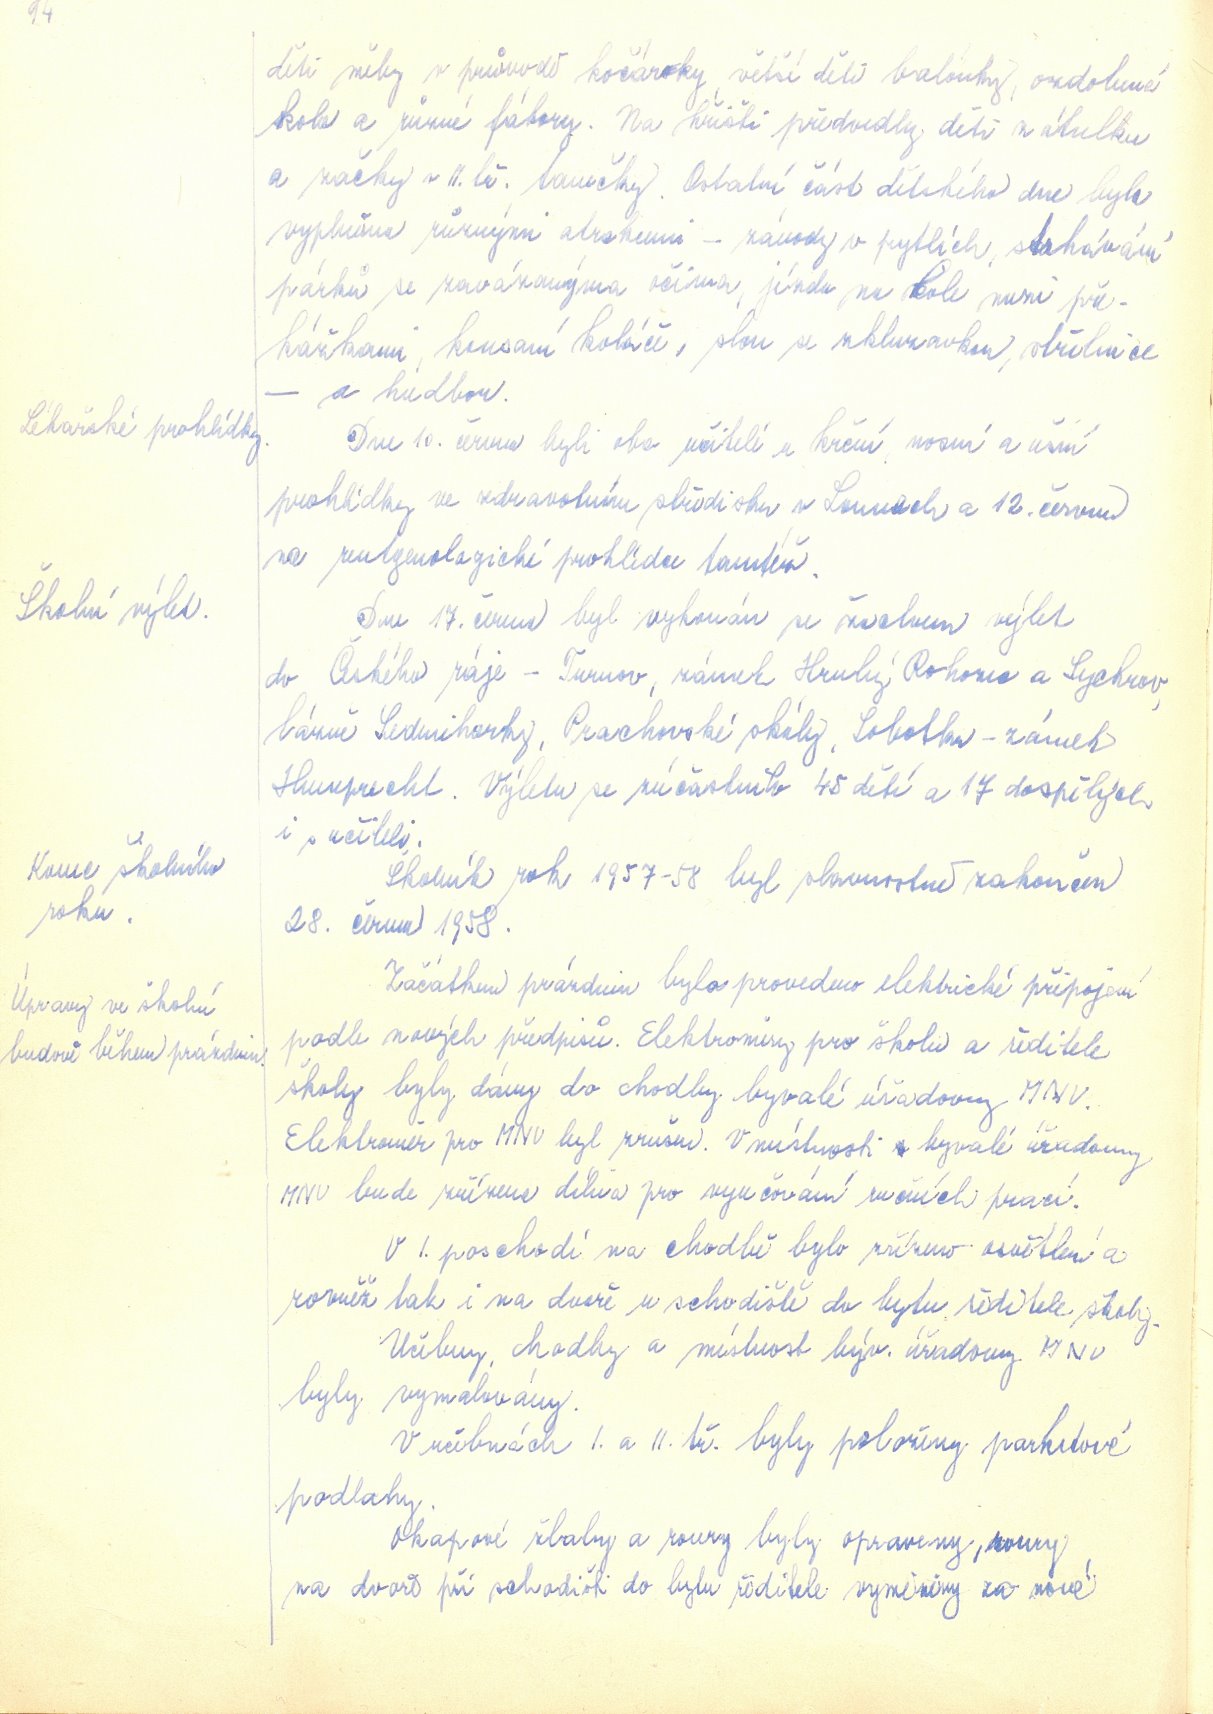 94
děti měly v průvodě kočárky, větší děti balónky, ozdobená
kola a různé fábory. Na hřišti předvedly děti z útulku
a žačky v II. tř. tanečky. Ostatní část dětského dne byla
vyplněna různými atrakcemi – závody v pytlích, strhávání
párků se zavázanýma očima, jízda na kole mezi pře-
kážkami, kousaní koláče, slon se zkluzavkou, střelnice
— a hudbou.
Lékařské prohlídky.
Dne 10. června byli oba učitelé u krční, nosní a ušní
prohlídky ve zdravotním středisku v Lounech a 12. června
na rentgenologické prohlídce tamtéž.
Školní výlet.
Dne 17. června byl vykonán se žactvem výlet
do Českého ráje – Turnov, zámek Hrubý Rohozec a Sychrov,
lázně Sedmihorky, Prachovské skály, Sobotka – zámek
Humprecht. Výletu se zúčastnilo 45 dětí a 17 dospělých
i s učiteli.
Konec školního
roku.
Školník rok 1957-58 byl slavnostně zakončen
28. června 1958.
Úpravy ve školní
budově během prázdnin.
Začátkem prázdnin bylo provedeno elektrické připojení
podle nových předpisů. Elektroměry pro školu a ředitele
školy byly dány do chodby bývalé úřadovny MNV.
Elektroměr pro MNV byl zrušen. V místnosti bývalé úřadovny
MNV bude zřízena dílna pro vyučování ručních prací.
V I. poschodí na chodbě bylo zřízeno osvětlení a
rovněž tak i na dvoře u schodiště do bytu ředitele školy.
Učebny, chodby a místnost býv. úřadovny MNV
byly vymalovány.
V učebnách I. a II. tř. byly položeny parketové
podlahy.
Okapové žlaby a roury byly opraveny, roury
na dvoře při schodišti do bytu ředitele vyměněny za nové